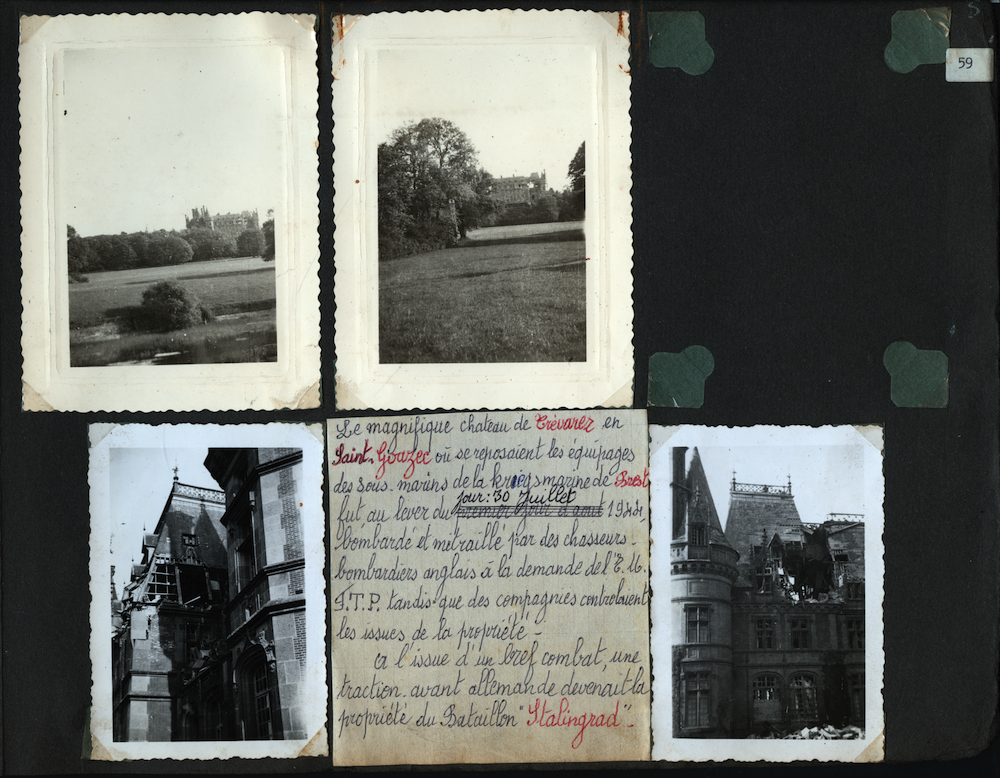 59
Le magnifique chateau de Trévarez en
Saint-Goazec où se reposaient les équipages
des sous-marins de la kriegsmarine de Brest
jour: 30 Juillet
fut au lever du premier jour d'aout 1944,
bombardé et mitraillé par des chasseurs-
bombardiers anglais à la demande de l'E.M.
F.T.P. tandis que des compagnies controlaient
les issues de la propriété -
A l'issue d'un bref combat, une
traction-avant allemande devenait la
propriété du Bataillon "Stalingrad"-